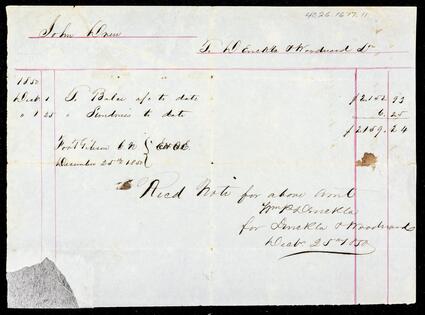 4026.1677.11
John Drew
To Denckla & Woodward Dr
1850
Decbr 1 To Balce a/c to date $2152 93
" " 25 " Sundries to date 6.25
$2159.24
Fort Gibson C N
December 25th 1850
Recd Note for above Amt
Wm P Denckla
for Denckla & Woodward
Decbr 25th 1850